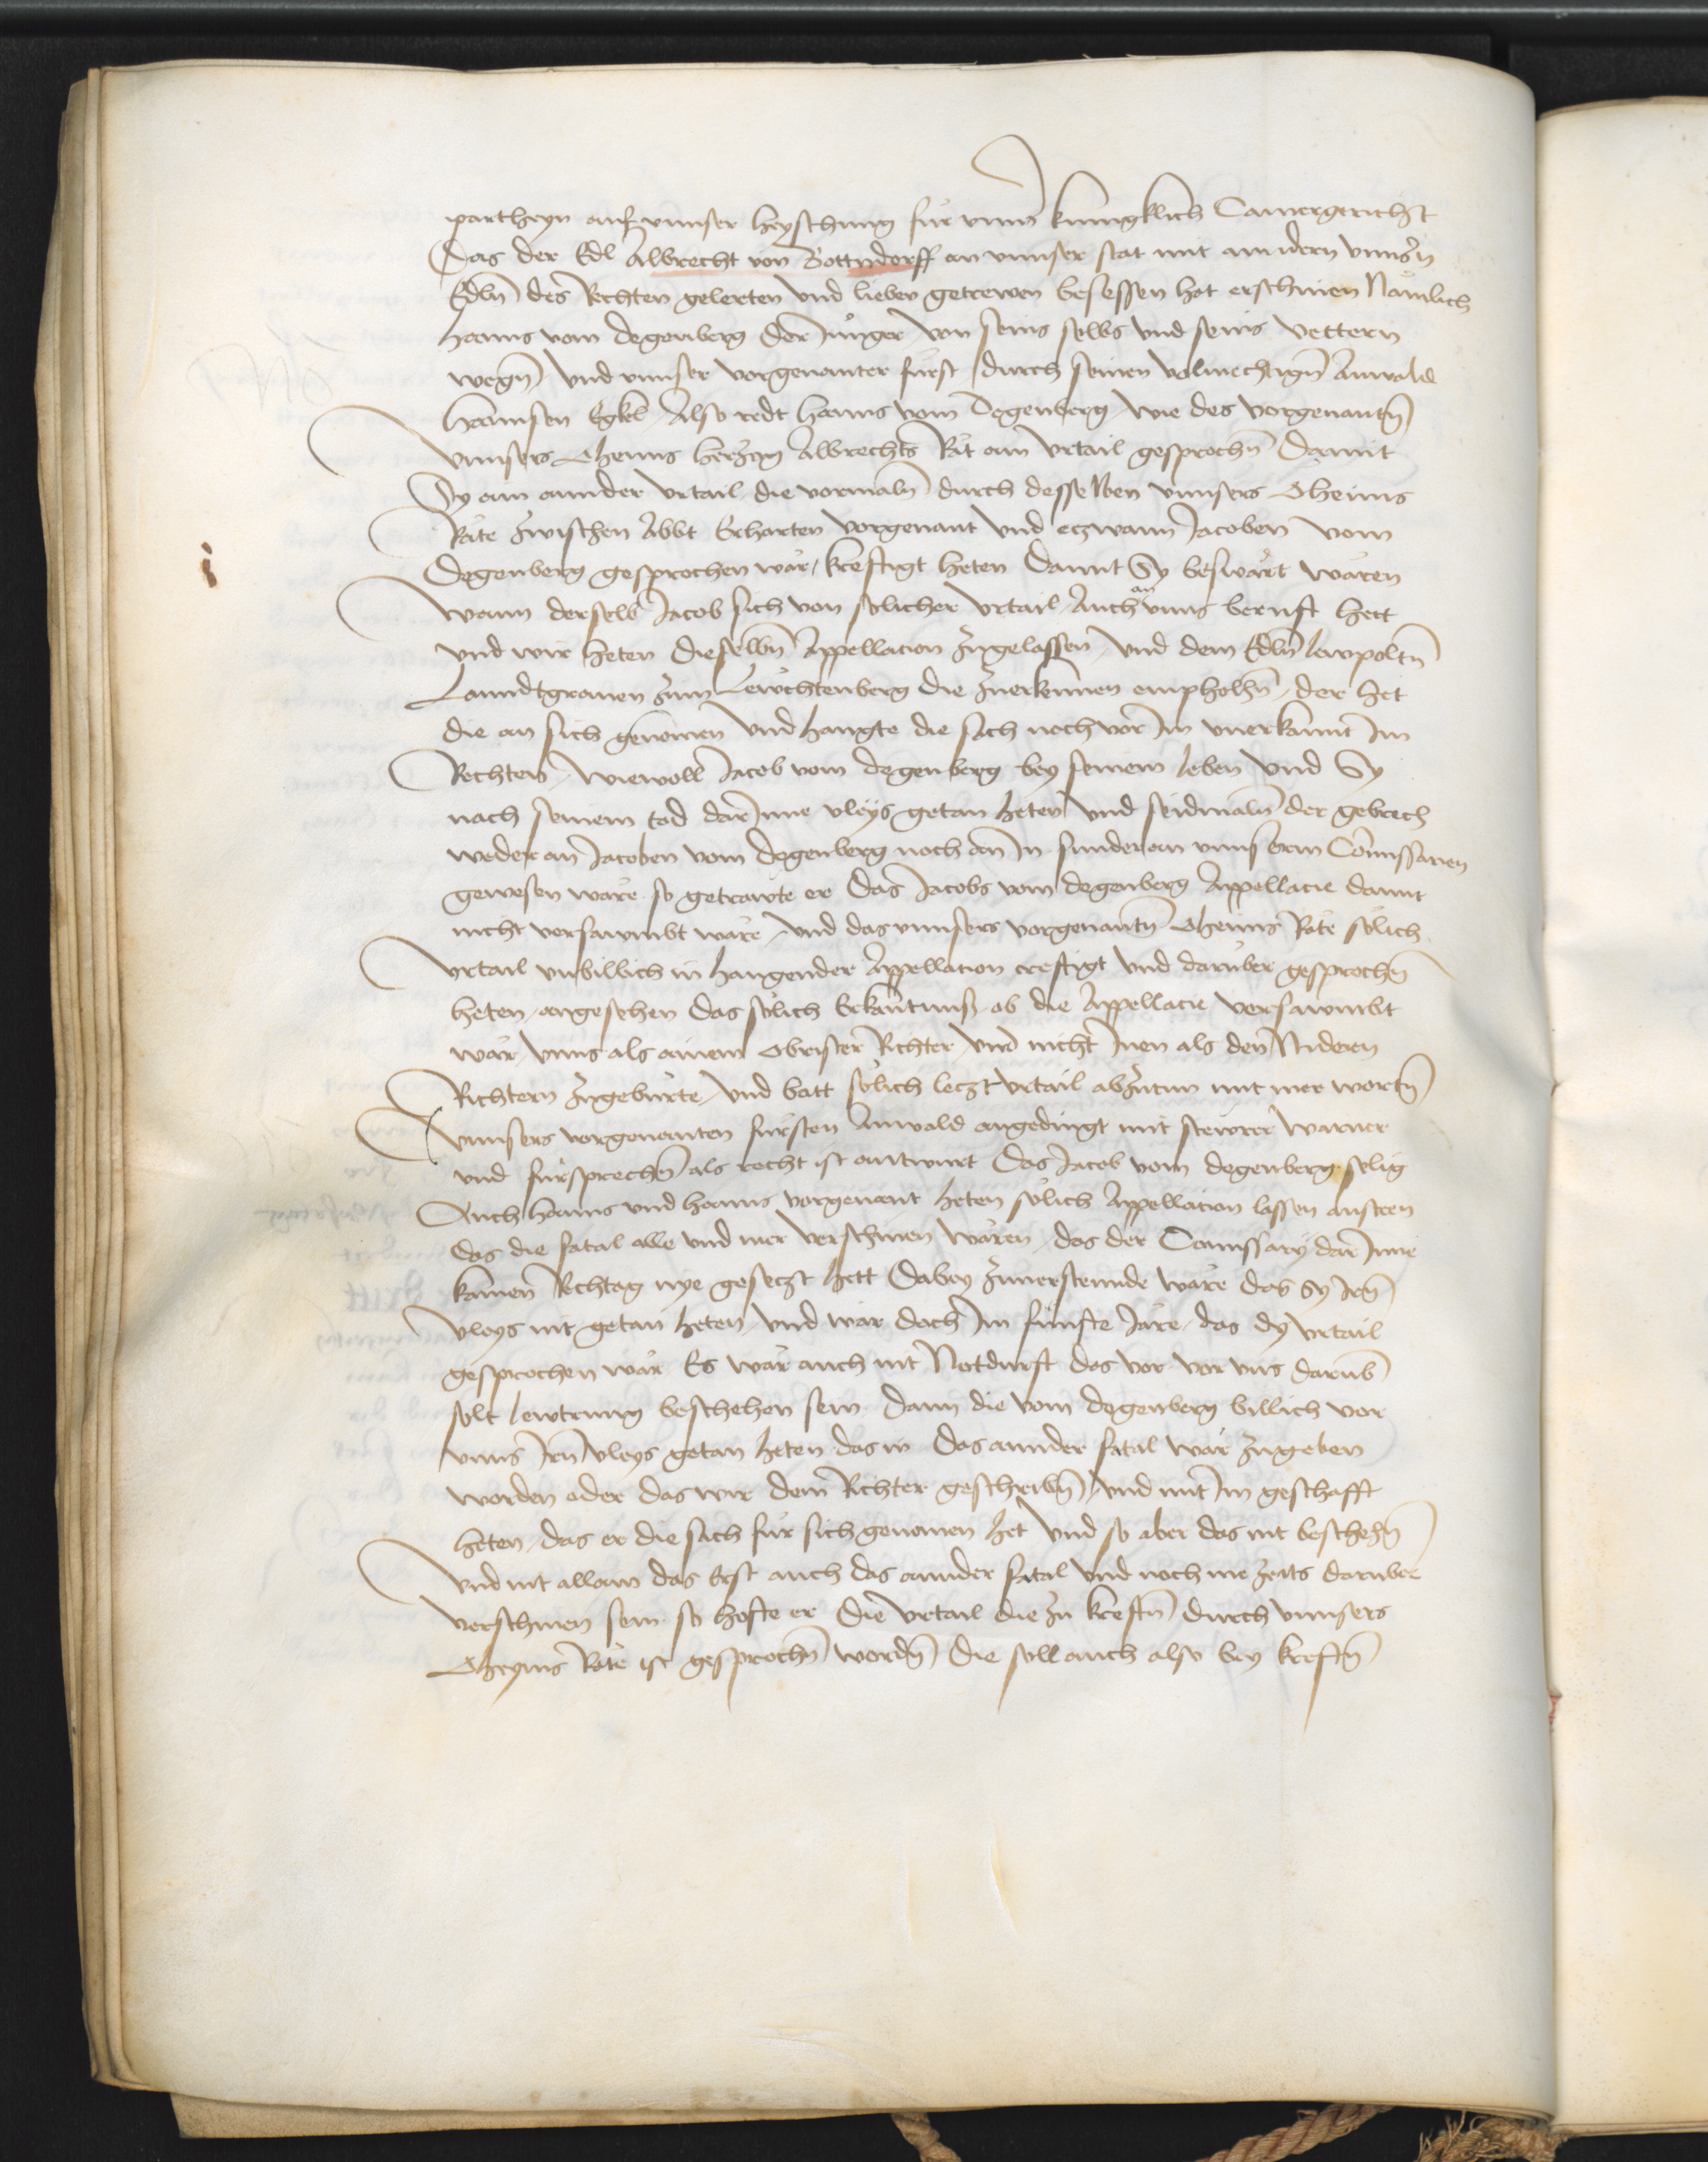 partheyn auf unnser heyschung fur unns kunigklich Camergericht
Das der Edl Albrecht von Bottndorff an unnser stat mit anndern unnsn̄
Edln̄ des Rechten gelerten vnd lieben getrewen besessen hat erschinen Nämlich
Hanns vom Degenberg der Junger von seins selbs vnd seins vettern
wegn̄ vnd vnnser vorgenanter fürst durch seinen volmechtign̄ Anwald
Hannsen Egkl Also redt Hanns vom Degenberg wie des vorgenantn̄
Vnnsers Oheims Herczog Albrechts Rät ain vrtail gesprochn̄ Damit
Sy ain annder vrtail die vormaln̄ durch desselben vnnsers Oheims
Räte zwischen Abbt Erharten vorgenant vnd eczwann Jacoben vom
Degenberg gesprochen wär kreftigt heten Damit Sy beswärt wären
Wann derselb Jacob sich von solicher vrtail Auch an vnns beruft hett
vnd wir heten dieselbn̄ Appellacion zugelassen vnd dem Edln̄ lewpoltn̄
Lanndtgrauen zum Lewchtenberg die zuerkennen empholhn̄ der het
die an sich genomen vnd hangte die sach noch vor Im vnerkannt Im
Rechten Wiewoll Jacob vom Degenberg bey seinem leben vnd Sy
nach seinem tod darInne vleys getan heten vnd seidmaln̄ der gebrech
weder an Jacoben vom Degenberg noch an In sunder an vnnserm Comissarien
gewesen wäre so getrawte er Das Jacobs vom degenberg Appellacie damit
nicht versawmbt wäre vnd das vnnsers vorgenantn̄ Oheims Räte solich
vrtail vnbillich in hangender Appellation creftigt vnd daruber gesprochen̄
heten angesehen das solich Erkantnuß ob die Appellacie versawmbt
wär vnns als ainem Obrister Richter vnd nicht Inen als den Nidern
Richtern zugebürte vnd batt solich leczt vrtail abzutun mit mer wortn̄
Vnnsers vorgenanten fürsten Anwald angedingt mit stewrer Warner
vnd fursprechen̄ als recht ist antwurt Das Jacob vom degenberg selig
Auch Hanns vnd Hanns vorgenant heten solich Appellation lassen ansteen
das die fatal alle vnd mer verschinen wären das der Comissary darInne
kainen Rechtag nye geseczt hett Dabey zuuersteende wäre das Sy Irn̄
vleys nit getan heten vnd wär doch Im funfte Jare das dy vrtail
gesprochen wär Es wär auch nit Notdurft das vor vor vns darub̄
solt lewtrung beschehen sein Dann die vom degenberg billich vor
vnns Irn̄ vleys getan heten das in das annder fatal wär zugeben
worden oder das wir dem Richter geschribn̄ vnd mit Im geschafft
heten das er die sach fur sich genomen het vnd so aber das nit beschehn̄
Vnd nit allain das Erst auch das annder fatal vnd noch me zeits daruber
verschinen sein so hofte er Die vrtail die zu kreftn̄ durch vnnsers
Oheyms Räte ist gesprochn̄ wordn̄ die soll auch also bey kreftn̄